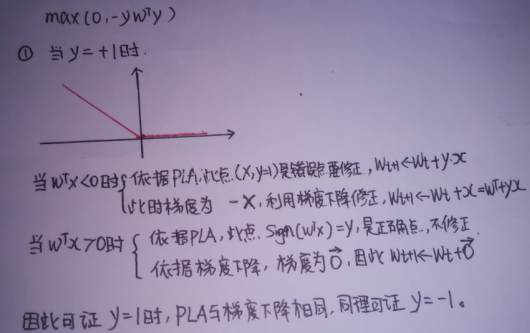 max(0, -ywᵀy)
① 当 y=+1时.
当 wᵀx<0时 { 依据PLA,此点(x,y=1)是错误点要修正, Wt+1←Wt+y·x
此时梯度为 -x, 利用梯度下降修正, Wt+1←Wt+x=wᵀ+yx
当 wᵀx>0时 { 依据PLA, 此点 Sign(wᵀx)=y, 是正确点, 不修正.
依据梯度下降, 梯度为0⃗, 因此 Wt+1←Wt+0⃗
因此可证 y=1时, PLA与梯度下降相同, 同理可证 y=-1。